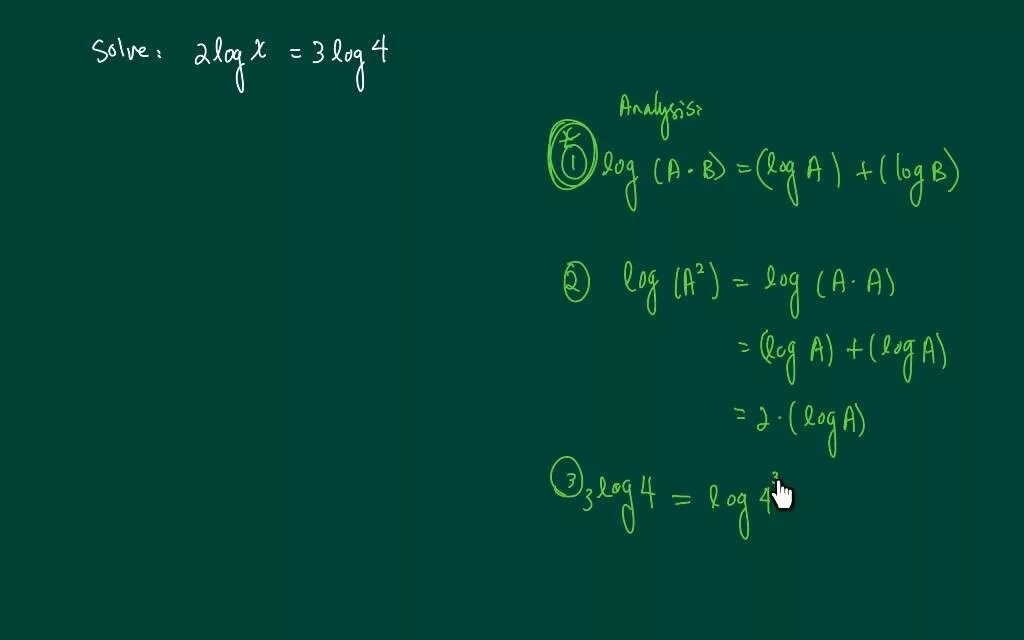 Solve: 2 log x = 3 log 4
Analysis:
① log (A · B) = (log A) + (log B)
② log (A²) = log (A · A)
= (log A) + (log A)
= 2 · (log A)
③ 3 log 4 = log 4³